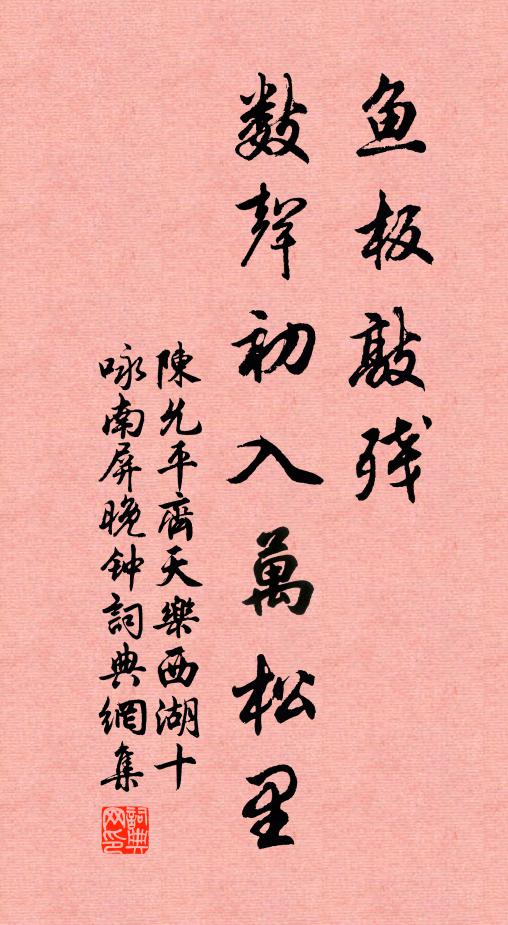 鱼板敲残
数聲初入萬松里
陳允平齊天樂西湖十
咏南屏晚钟詞典網集
詞典网印